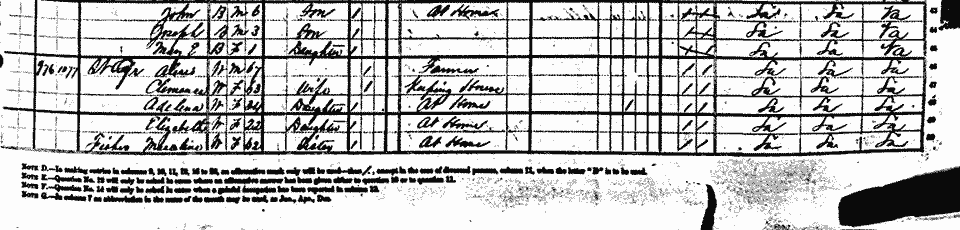 John B M 6 Son 1 At Home La La Va 43
Joseph B M 3 Son 1 La La Va 44
Mary E B F 1 Daughter 1 La La Va 45
976 1077 St Cyr W M 67 1 Farmer La La La
Clemence W F 63 Wife 1 Keeping House La La La
Adelena W F 24 Daughter 1 At Home La La La
Elizabeth W F 22 Daughter 1 At Home La La La
Fisher W F 62 Sister 1 At Home La La La
NOTE D.—In making entries in columns 9, 10, 11, 12, 16 to 20, an affirmative mark only will be used—thus /, except in the case of divorced persons, column 11, when the letter "D" is to be used.
NOTE E.—Question No. 12 will only be asked in cases where an affirmative answer has been given either to question 10 or to question 11.
NOTE F.—Question No. 14 will only be asked in cases when a gainful occupation has been reported in column 13.
NOTE G.—In column 7 an abbreviation in the name of the month may be used, as Jan., Apr., Dec.